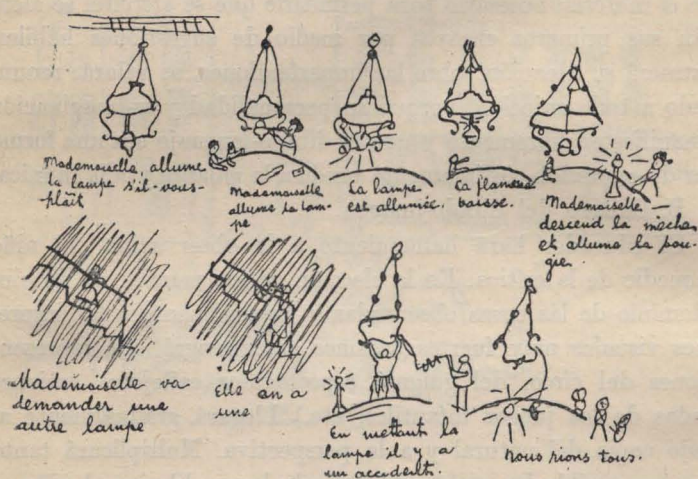 Mademoiselle, allume
la lampe s'il-vous-
plait
Mademoiselle
allume la lam-
pe
La lampe
est allumée.
La flamme
baisse.
Mademoiselle —
descend la mèche
et allume la bou-
gie.
Mademoiselle va
demander une
autre lampe
Elle en a
une
En mettant la
lampe il y a
un accident.
Nous rions tous.